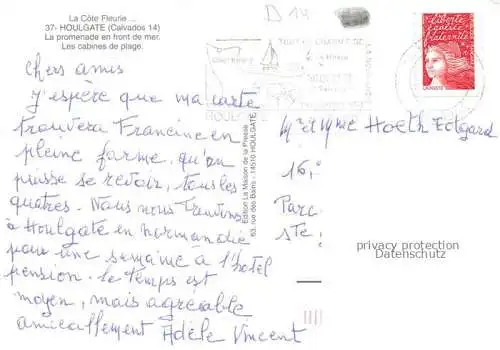 La Côte Fleurie ...
37- HOULGATE (Calvados 14)
La promenade en front de mer.
Les cabines de plage.
D 14
Chers amis
J'espère que ma carte
trouvera Francine en
pleine forme, qu'on
puisse se revoir, tous les
quatres. Nous nous trouvons
à Houlgate en Normandie
pour une semaine à l'hotel
pension. le temps est
moyen, mais agréable
amicallement Adèle Vincent
Edition La Maison de la Presse
63, rue des Bains - 14510 HOULGATE
HOULGATE
liberté
égalité
fraternité
LA POSTE
Mr et Mme Hoeth Edgard
16,
Parc
Ste
privacy protection
Datenschutz